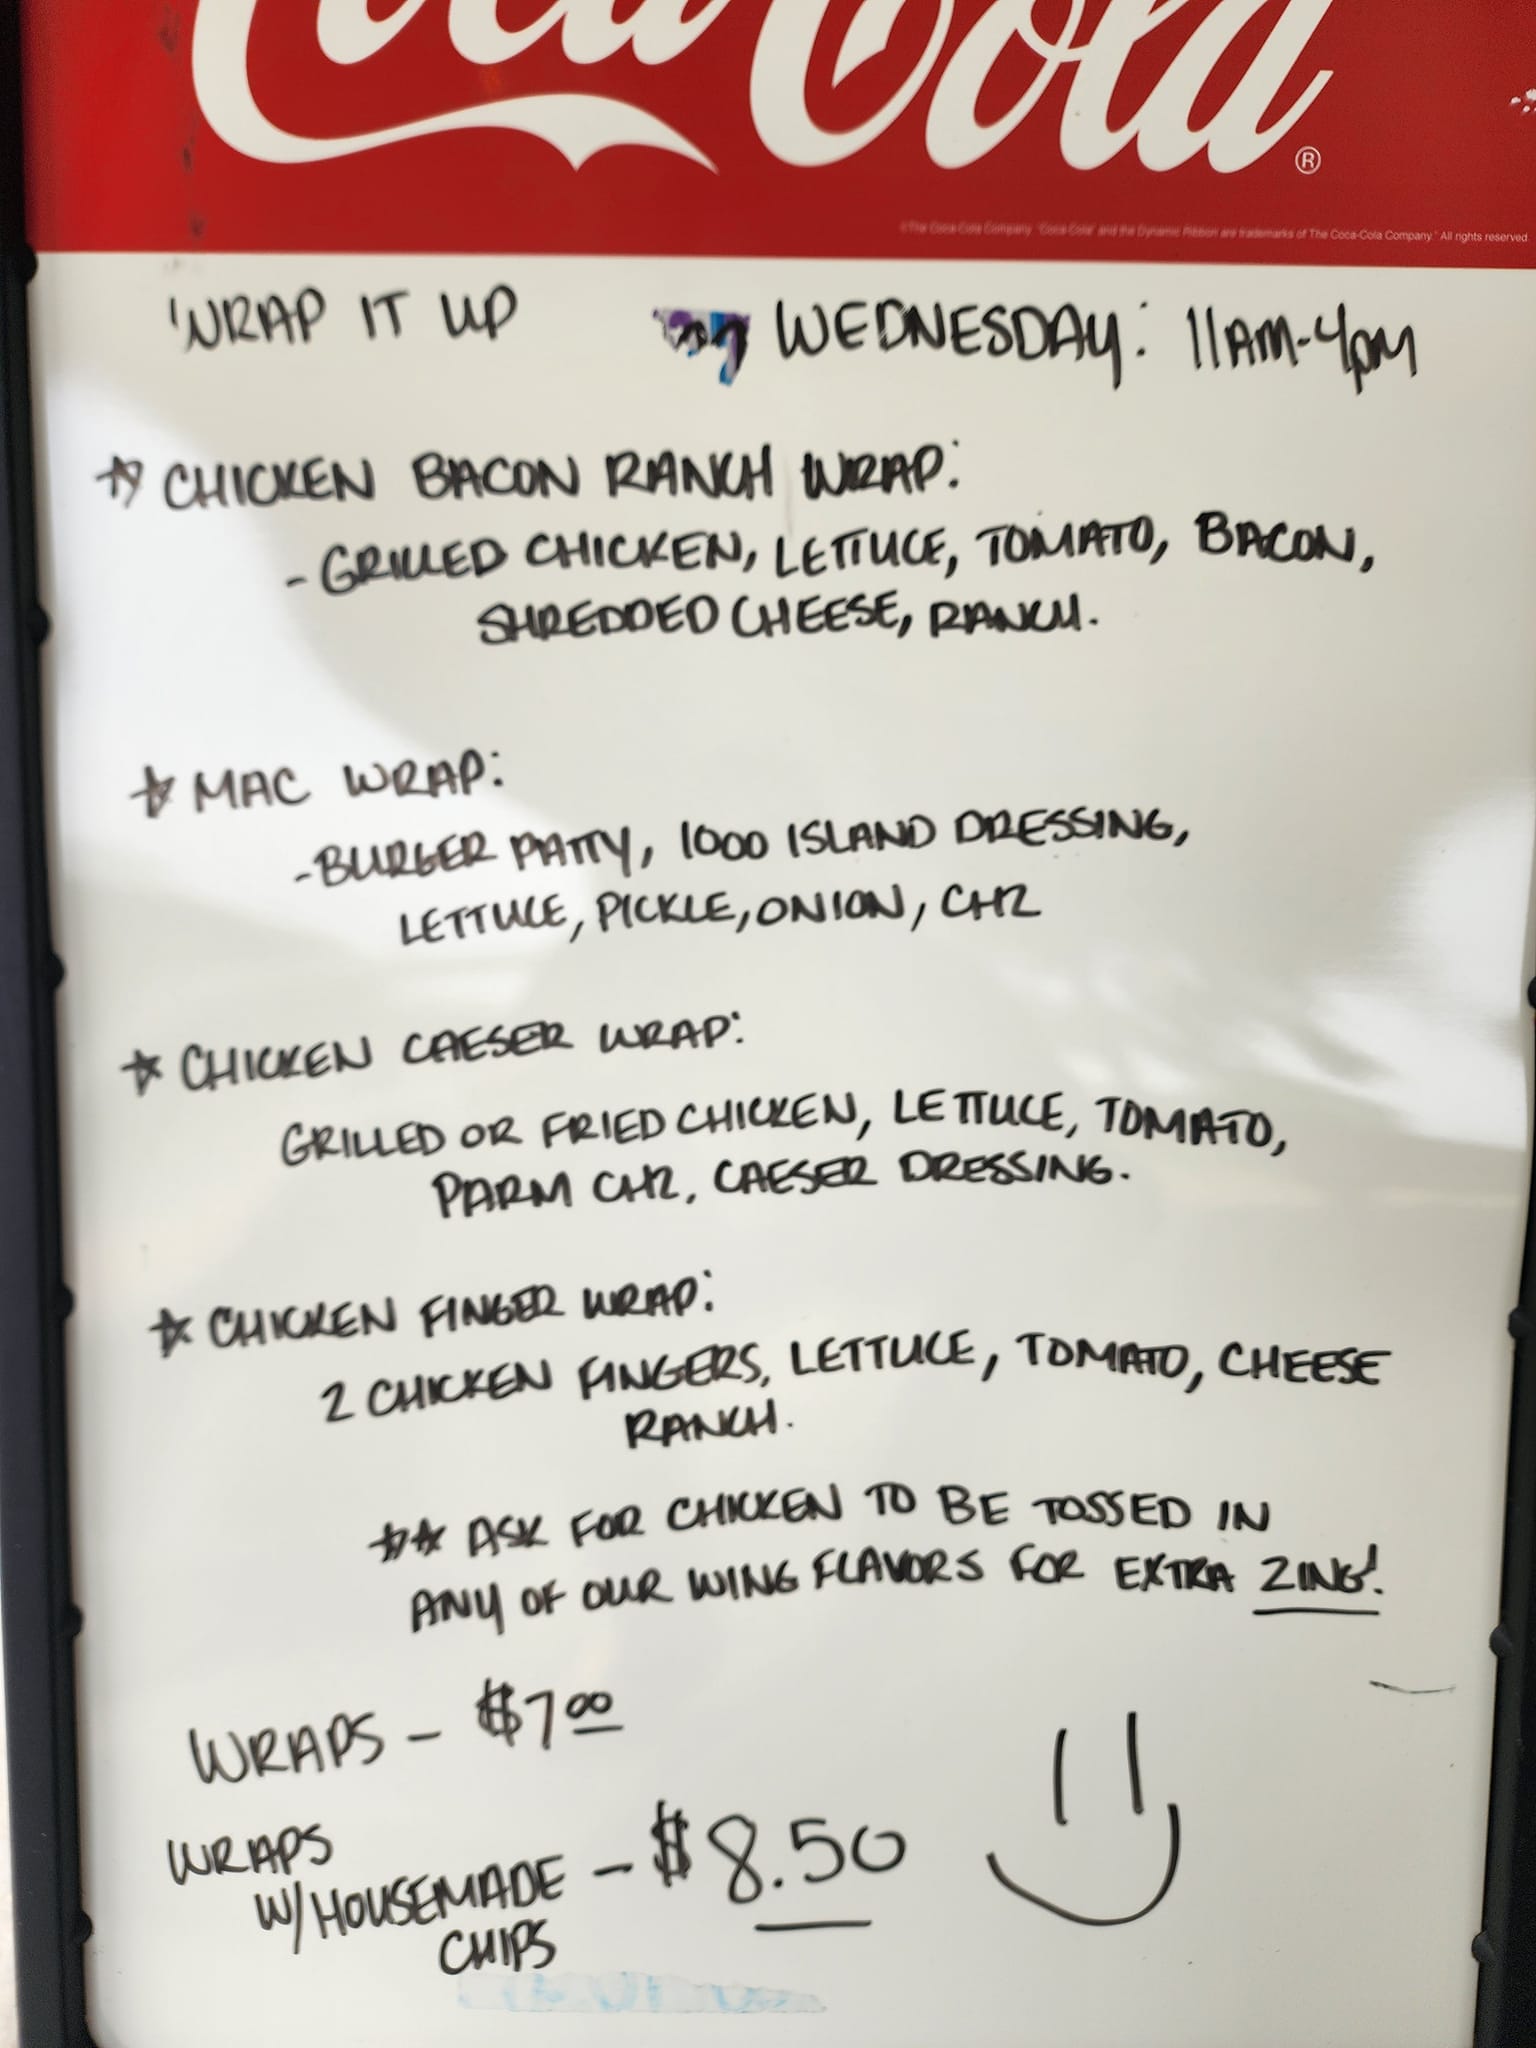 Coca-Cola ®
©The Coca-Cola Company. "Coca-Cola" and the Dynamic Ribbon are trademarks of The Coca-Cola Company. All rights reserved
WRAP IT UP WEDNESDAY: 11AM-4PM
☆ CHICKEN BACON RANCH WRAP:
- GRILLED CHICKEN, LETTUCE, TOMATO, BACON,
SHREDDED CHEESE, RANCH.
☆ MAC WRAP:
- BURGER PATTY, 1000 ISLAND DRESSING,
LETTUCE, PICKLE, ONION, CHZ
☆ CHICKEN CAESER WRAP:
GRILLED OR FRIED CHICKEN, LETTUCE, TOMATO,
PARM CHZ, CAESER DRESSING.
☆ CHICKEN FINGER WRAP:
2 CHICKEN FINGERS, LETTUCE, TOMATO, CHEESE
RANCH.
☆☆ ASK FOR CHICKEN TO BE TOSSED IN
ANY OF OUR WING FLAVORS FOR EXTRA ZING!
WRAPS - $7.00
WRAPS
W/HOUSEMADE - $8.50
CHIPS